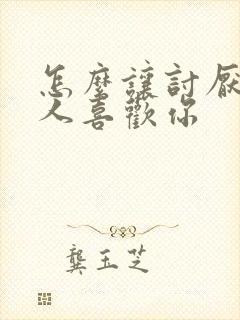 怎麼讓討厭
人喜歡你
龔玉芝